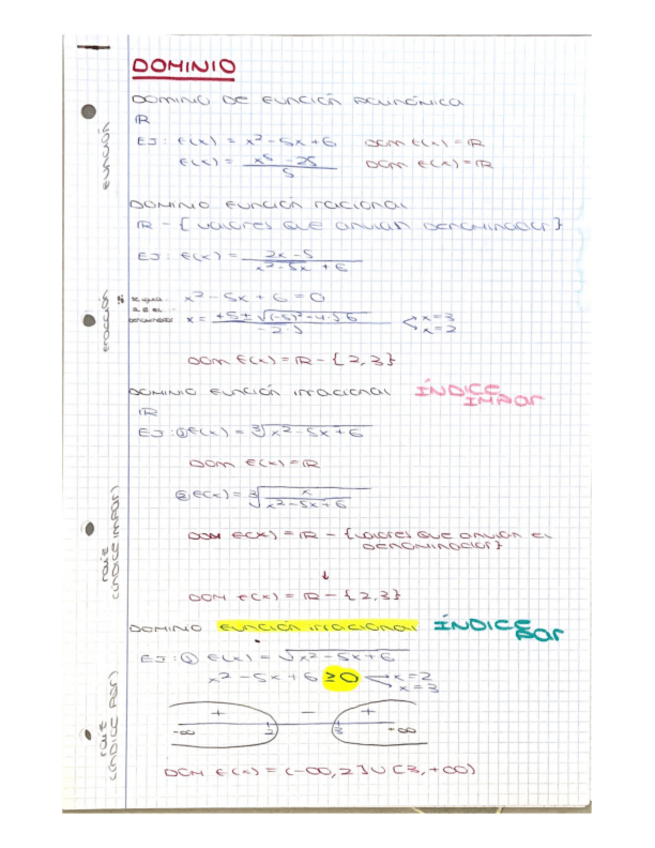 DOMINIO
DOMINIO DE FUNCIÓN POLINÓMICA
ℝ
EJ: F(x) = x² - 5x + 6 DOM F(x) = ℝ
F(x) = x⁵ - 25 / 5 DOM F(x) = ℝ
FUNCIÓN
DOMINIO FUNCIÓN racional
ℝ - { valores que anulan denominador }
EJ: F(x) = 2x - 5 / x² - 5x + 6
Fracción
se iguala a 0 el denominador
x² - 5x + 6 = 0
x = +5 ± √(-5)² - 4·1·6 / 2·1 < x=3 x=2
DOM F(x) = ℝ - { 2, 3 }
DOMINIO FUNCIÓN irracional ÍNDICE IMPAR
ℝ
EJ: ① F(x) = ∛x² - 5x + 6
DOM F(x) = ℝ
② F(x) = ∛x / x² - 5x + 6
raíz (ÍNDICE IMPAR)
DOM F(x) = ℝ - { valores que anulan el
denominador }
↓
DOM F(x) = ℝ - { 2, 3 }
DOMINIO FUNCIÓN irracional ÍNDICE par
EJ: ① F(x) = √x² - 5x + 6
x² - 5x + 6 ≥ 0 < x=2 x=3
raíz (ÍNDICE PAR)
+ - +
-∞ 2 3 -∞
DOM F(x) = (-∞, 2] ∪ [3, +∞)